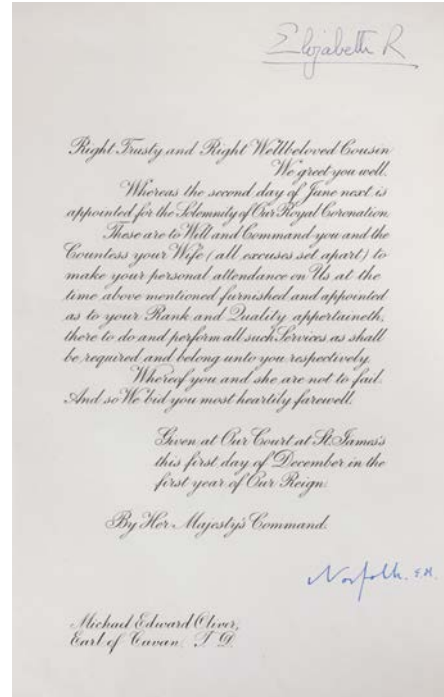 Elizabeth R
Right Trusty and Right Wellbeloved Cousin
We greet you well.
Whereas the second day of June next is
appointed for the Solemnity of Our Royal Coronation.
These are to Will and Command you and the
Countess your Wife (all excuses set apart) to
make your personal attendance on Us at the
time above mentioned furnished and appointed
as to your Rank and Quality appertaineth,
there to do and perform all such Services as shall
be required and belong unto you respectively.
Whereof you and she are not to fail.
And so We bid you most heartily farewell.
Given at Our Court at St. James's
this first day of December in the
first year of Our Reign.
By Her Majesty's Command.
Norfolk. E.M.
Michael Edward Oliver,
Earl of Cavan. T D.